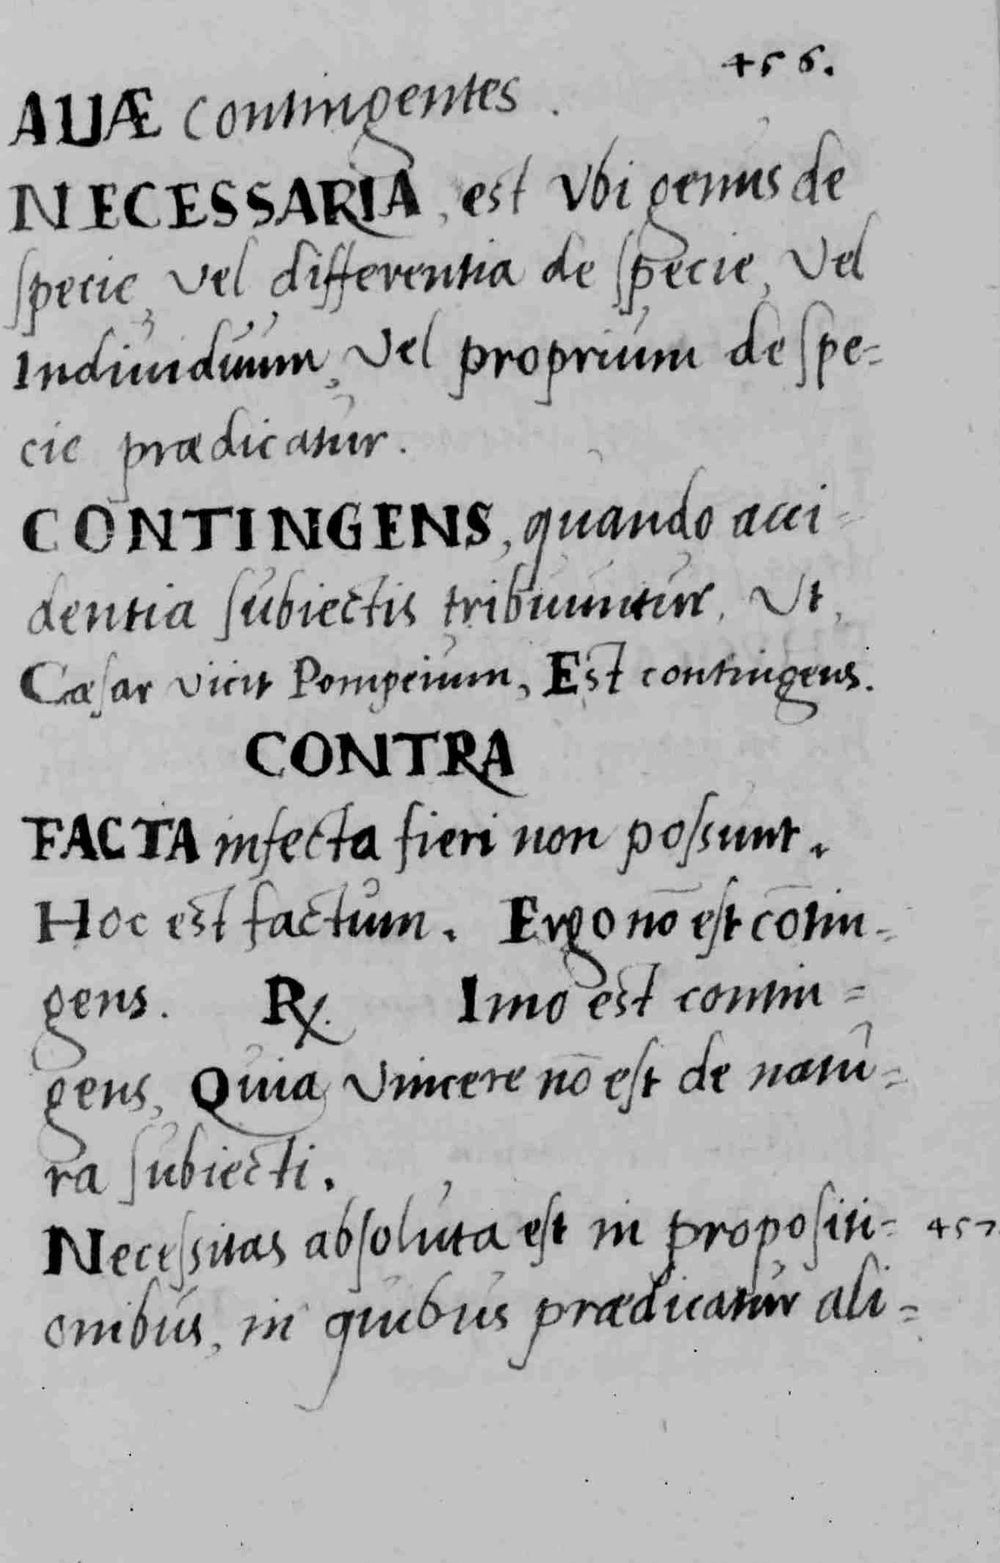 456.
ALIÆ contingentes.
NECESSARIA, est Vbi genus de
specie, Vel differentia de specie, Vel
Indiuiduum, Vel proprium de spe=
cie prædicatur.
CONTINGENS, quando acci=
dentia subiectis tribuuntur, Vt,
Cæsar vicit Pompeium, Est contingens.
CONTRA
FACTA infecta fieri non possunt.
Hoc est factum. Ergo nō est cōtin=
gens. ℞. Imo est contin=
gens, Quia vincere nō est de natu=
ra subiecti.
Necessitas absoluta est in propositi= 457
onibus, in quibus prædicatur ali=